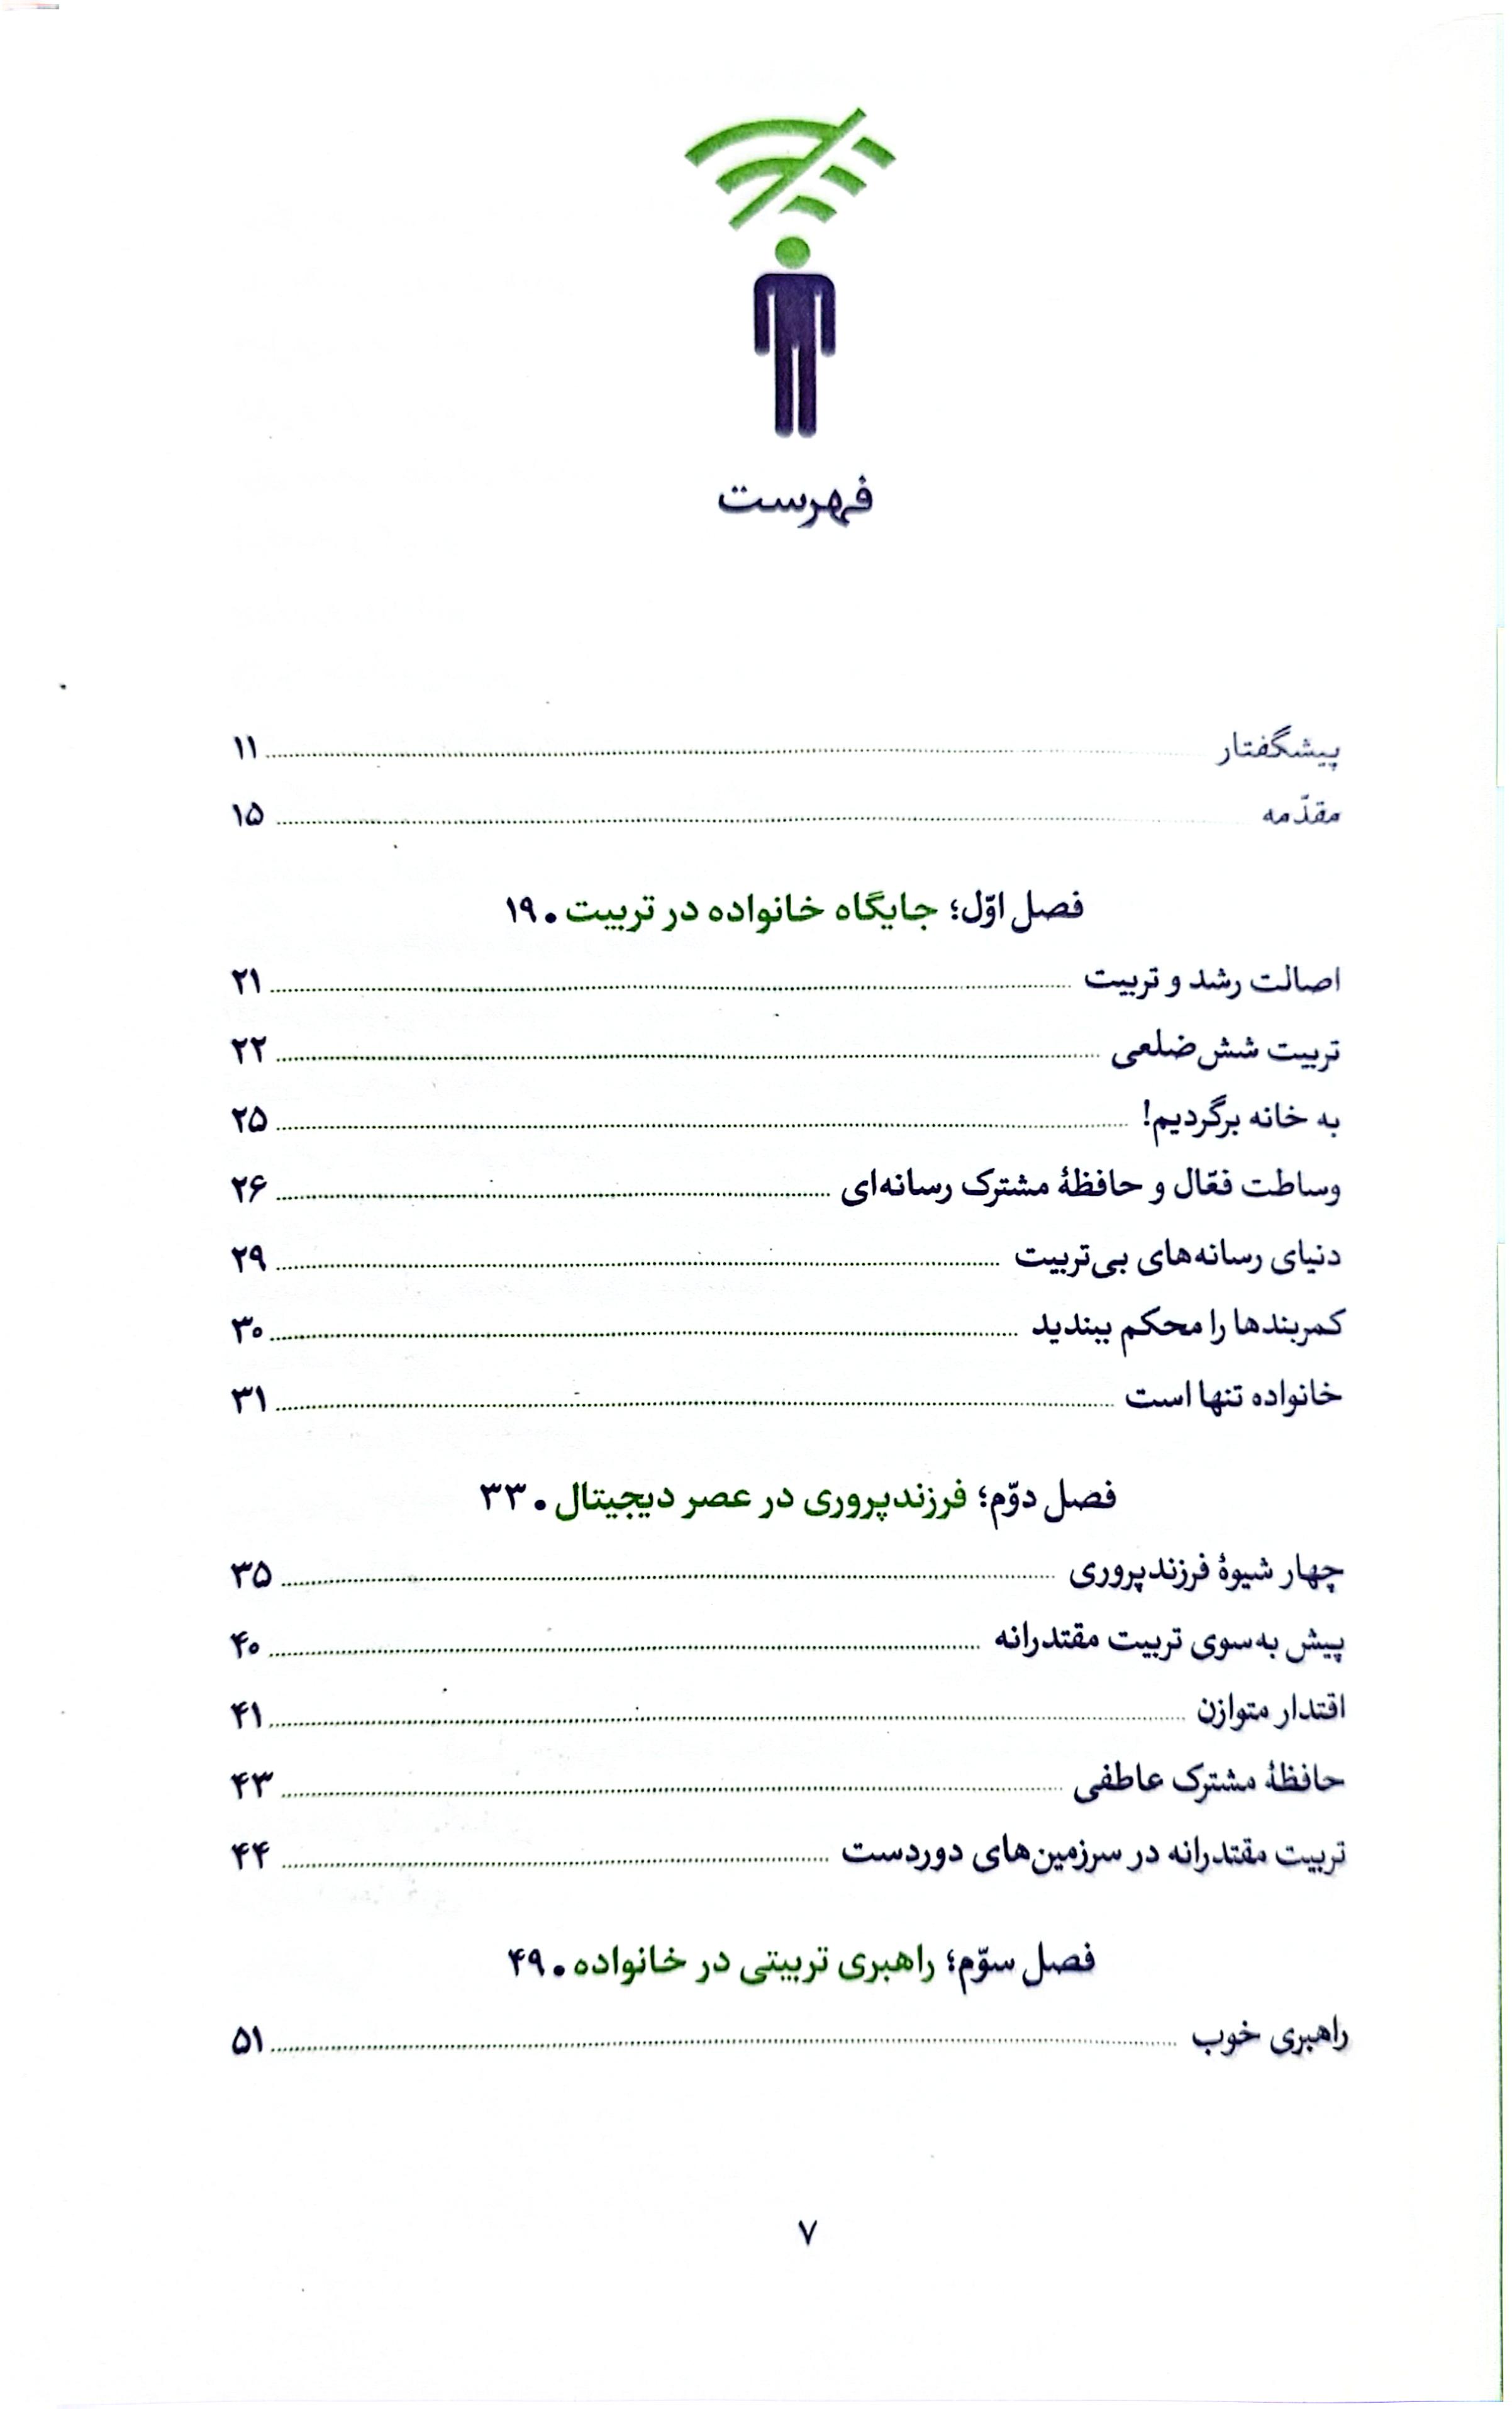 فهرست
پیشگفتار ۱۱
مقدّمه ۱۵
فصل اوّل؛ جایگاه خانواده در تربیت • ۱۹
اصالت رشد و تربیت ۲۱
تربیت شش‌ضلعی ۲۲
به خانه برگردیم! ۲۵
وساطت فعّال و حافظهٔ مشترک رسانه‌ای ۲۶
دنیای رسانه‌های بی‌تربیت ۲۹
کمربندها را محکم ببندید ۳۰
خانواده تنها است ۳۱
فصل دوّم؛ فرزندپروری در عصر دیجیتال • ۳۳
چهار شیوهٔ فرزندپروری ۳۵
پیش به‌سوی تربیت مقتدرانه ۴۰
اقتدار متوازن ۴۱
حافظهٔ مشترک عاطفی ۴۳
تربیت مقتدرانه در سرزمین‌های دوردست ۴۴
فصل سوّم؛ راهبری تربیتی در خانواده • ۴۹
راهبری خوب ۵۱
۷